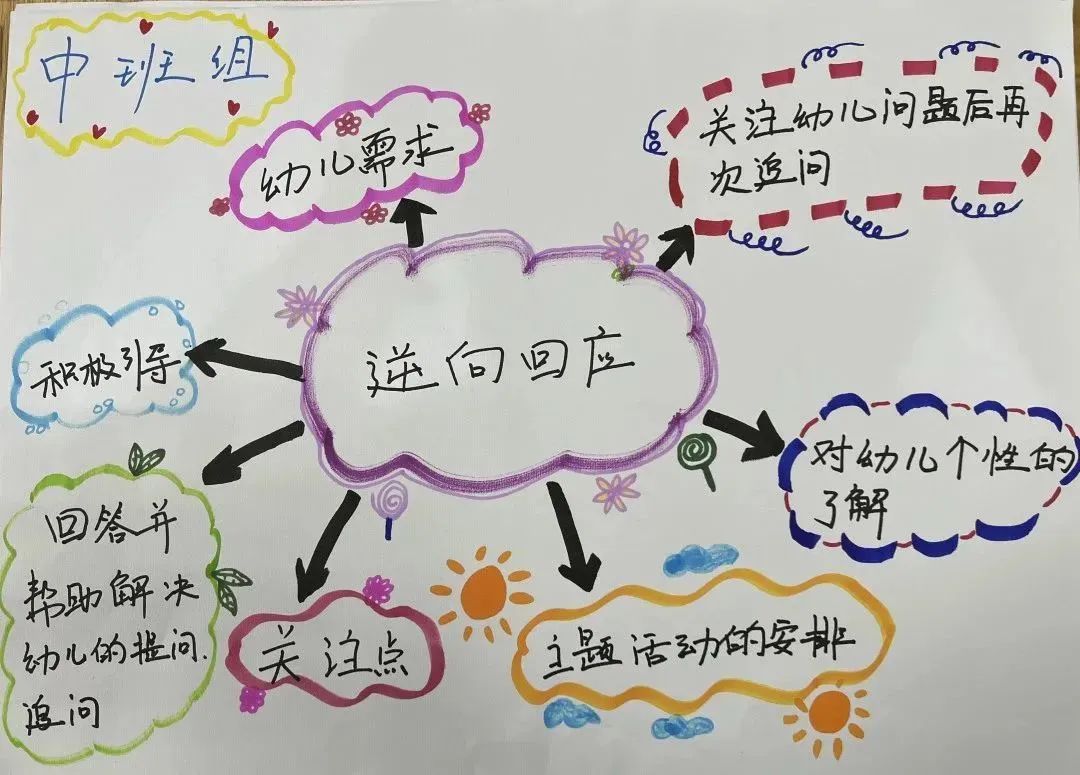 中班组
幼儿需求
关注幼儿问题后再
次追问
逆向回应
积极引导
对幼儿个性的
了解
回答并
帮助解决
幼儿的提问、
追问
关注点
主题活动的安排